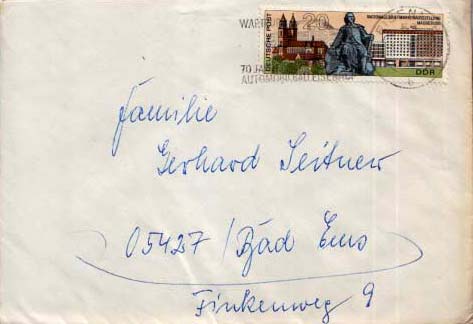 WART
20
NATIONALE BRIEFMARKENAUSSTELLUNG
MAGDEBURG
DEUTSCHE POST
DDR
70 JA
AUTOMOBILBAU EISENACH
Familie
Gerhard Seitner
05427 / Bad Ems
Finkenweg 9